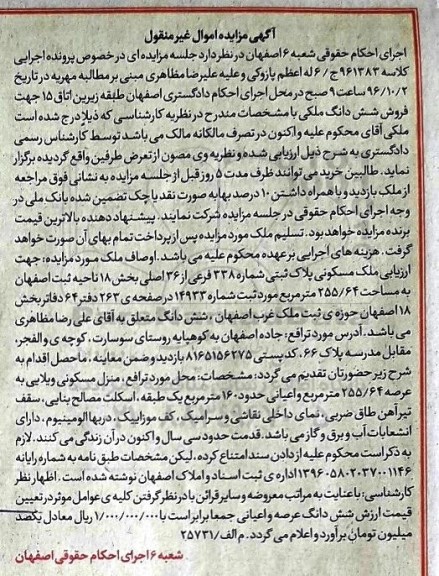 آگهی مزایده اموال غیر منقول
اجرای احکام حقوقی شعبه ۶ اصفهان در نظر دارد جلسه مزایده ای در خصوص پرونده اجرایی
کلاسه ۹۶۱۳۸۳ج/۶ له اعظم پازوکی و علیه علیرضا مظاهری مبنی بر مطالبه مهریه در تاریخ
۹۶/۱۰/۲ ساعت ۹ صبح در محل اجرای احکام دادگستری اصفهان طبقه زیرین اتاق ۱۵ جهت
فروش شش دانگ ملکی با مشخصات مندرج در نظریه کارشناسی که ذیلا درج شده است
ملکی آقای محکوم علیه و اکنون در تصرف مالکانه مالک می باشد توسط کارشناس رسمی
دادگستری به شرح ذیل ارزیابی شده و نظریه وی مصون از تعرض طرفین واقع گردیده برگزار
نماید. طالبین خرید می توانند ظرف مدت ۵ روز قبل از جلسه مزایده به نشانی فوق مراجعه
از ملک بازدید و با همراه داشتن ۱۰ درصد بها به صورت نقد یا چک تضمین شده بانک ملی در
وجه اجرای احکام حقوقی در جلسه مزایده شرکت نمایند. پیشنهاد دهنده بالاترین قیمت
برنده مزایده خواهد بود. تسلیم ملک مورد مزایده پس از پرداخت تمام بهای آن صورت خواهد
گرفت. هزینه های اجرایی بر عهده محکوم علیه می باشد. اوصاف ملک مورد مزایده: جهت
ارزیابی ملک مسکونی پلاک ثبتی شماره ۳۳۸ فرعی از ۳۶ اصلی بخش ۱۸ ناحیه ثبت اصفهان
به مساحت ۲۵۵/۶۴ متر مربع مورد ثبت شماره ۱۴۹۳۳ در صفحه ی ۲۶۳ دفتر ۶۴ دفاتر بخش
۱۸ اصفهان حوزه ی ثبت ملک غرب اصفهان، شش دانگ متعلق به آقای علی رضا مظاهری
می باشد. آدرس مورد ترافع: جاده اصفهان به کوهپایه روستای سوسارت. کوچه ی والفجر،
مقابل مدرسه پلاک ۶۶. کد پستی ۸۱۶۵۱۵۶۲۷۵ بازدید و ضمن معاینه، ماحصل اقدام به
شرح زیر حضورتان تقدیم می گردد: مشخصات: محل مورد ترافع، منزل مسکونی ویلایی به
عرصه ۲۵۵/۶۴ متر مربع و اعیانی حدود ۱۶۰ متر مربع یک طبقه، اسکلت مصالح بنایی، سقف
تیرآهن طاق ضربی، نمای داخلی نقاشی و سرامیک. کف موزاییک. دربها آلومینیوم. دارای
انشعابات آب و برق و گاز می باشد. قدمت حدود سی سال و اکنون در آن زندگی می کنند. لازم
به ذکر است محکوم علیه از دادن سند امتناع کرده. لیکن مشخصات طبق نامه به شماره رایانه
۱۳۹۶۰۵۸۰۲۰۳۷۰۰۱۱۴۶ اداره ی ثبت اسناد و املاک اصفهان نوشته شده است. اظهار نظر
کارشناسی: با عنایت به مراتب معروضه و سایر قرائن با در نظر گرفتن کلیه ی عوامل موثر در تعیین
قیمت ارزش شش دانگ عرصه و اعیانی جمعا برابر است با ۱/۰۰۰/۰۰۰/۰۰۰ ریال معادل یکصد
میلیون تومان برآورد و اعلام می گردد. م الف/۲۵۷۳۱
شعبه ۶ اجرای احکام حقوقی اصفهان